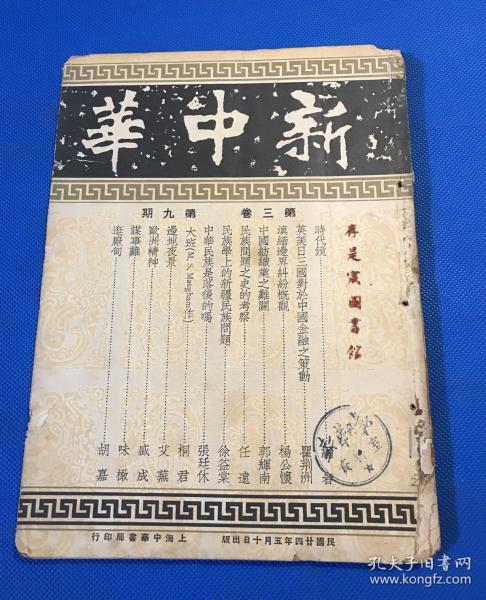 新中華
第三卷 第九期
時代鏡
英美日三國對於中國金融之策動 瞿荊洲
滇緬邊界糾紛概觀 楊公懷
中國紡織業之難關 郭輝南
民族問題之史的考察 任遠
民族學上的新疆民族問題 徐益棠
中華民族是落後的嗎 張廷休
大班(M. S. Maugham作) 桐君
邊地夜景 艾蕪
歐洲精神 戚成
謀事難 味橄
逛廠甸 胡嘉
再是宬圖書館
民國廿四年五月十日出版 上海中華書局印行
孔夫子旧书网
www.kongfz.com